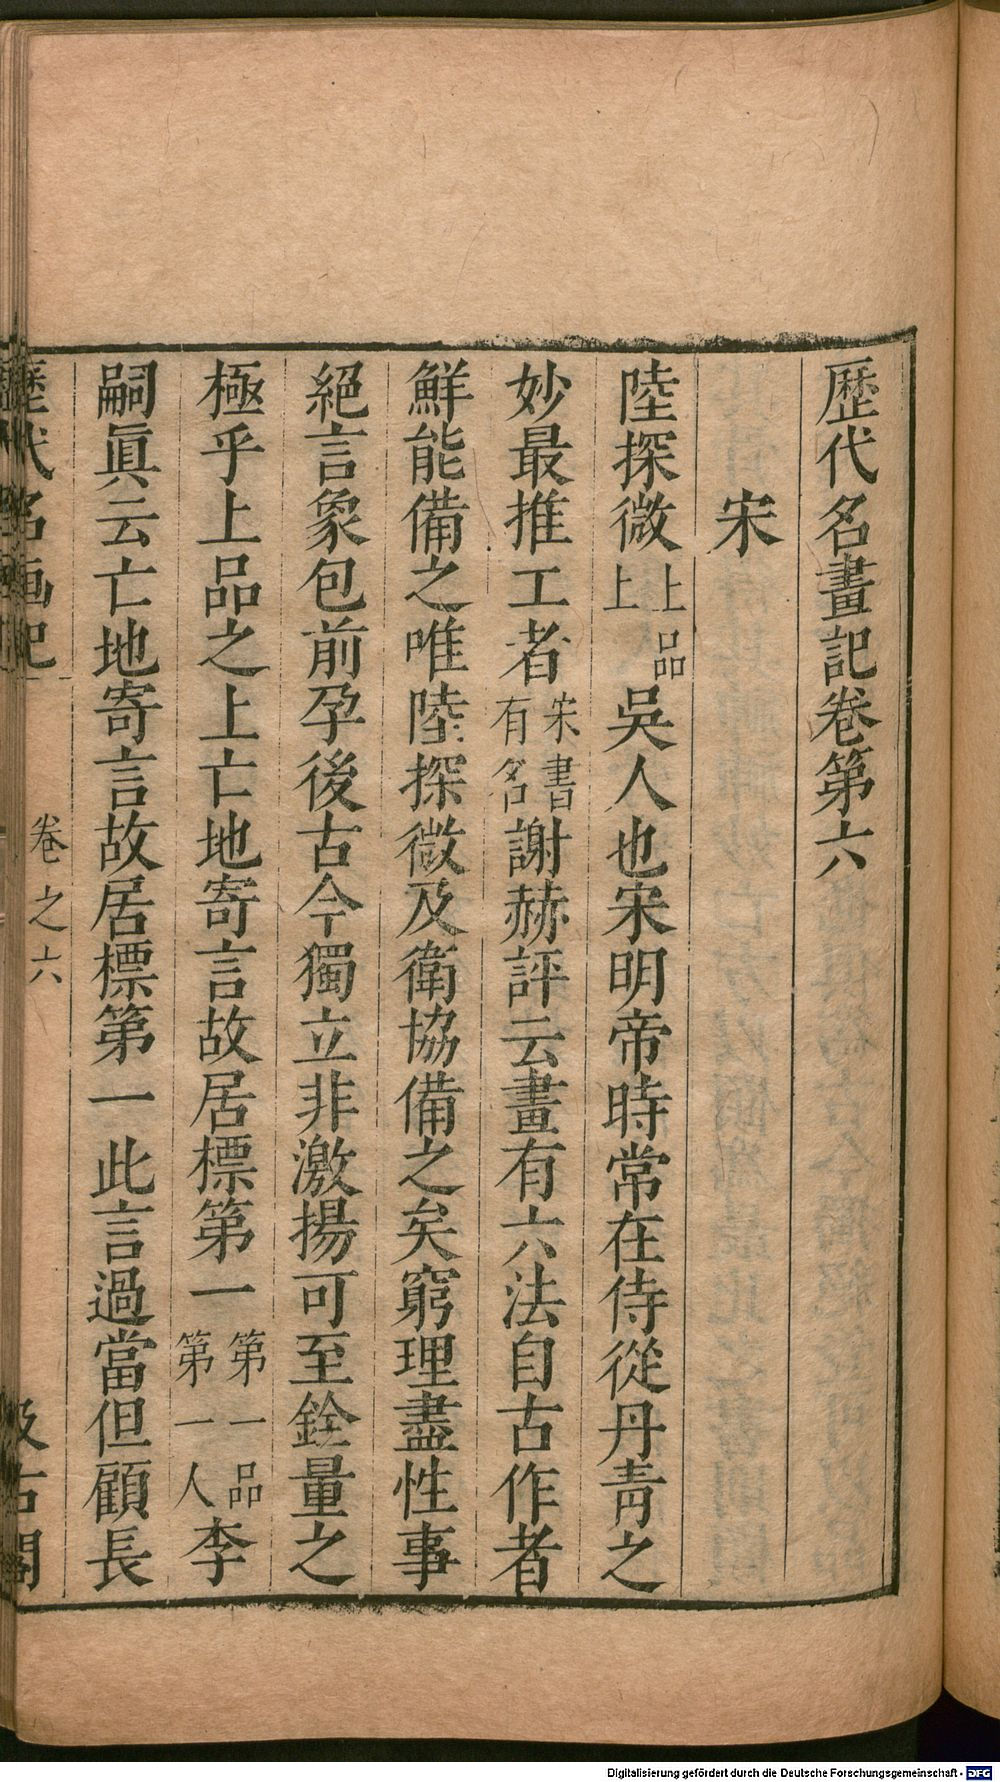 歷代名畫記卷第六
宋
陸探微上品上吳人也宋明帝時常在侍從丹靑之
妙最推工者宋書有名謝赫評云畫有六法自古作者
鮮能備之唯陸探微及衛協備之矣窮理盡性事
絕言象包前孕後古今獨立非激揚可至銓量之
極乎上品之上亡地寄言故居標第一第一品第一人李
嗣眞云亡地寄言故居標第一此言過當但顧長
歷代名畫記 卷之六 汲古閣
Digitalisierung gefördert durch die Deutsche Forschungsgemeinschaft - DFG